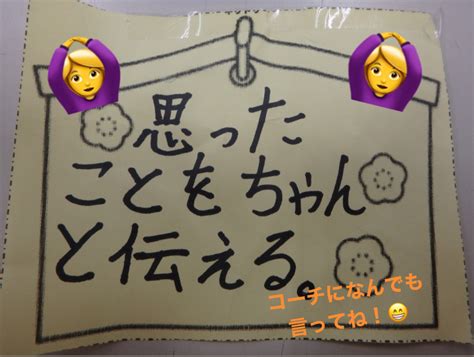 思った
ことをちゃん
と伝える。
コーチになんでも
言ってね！😁